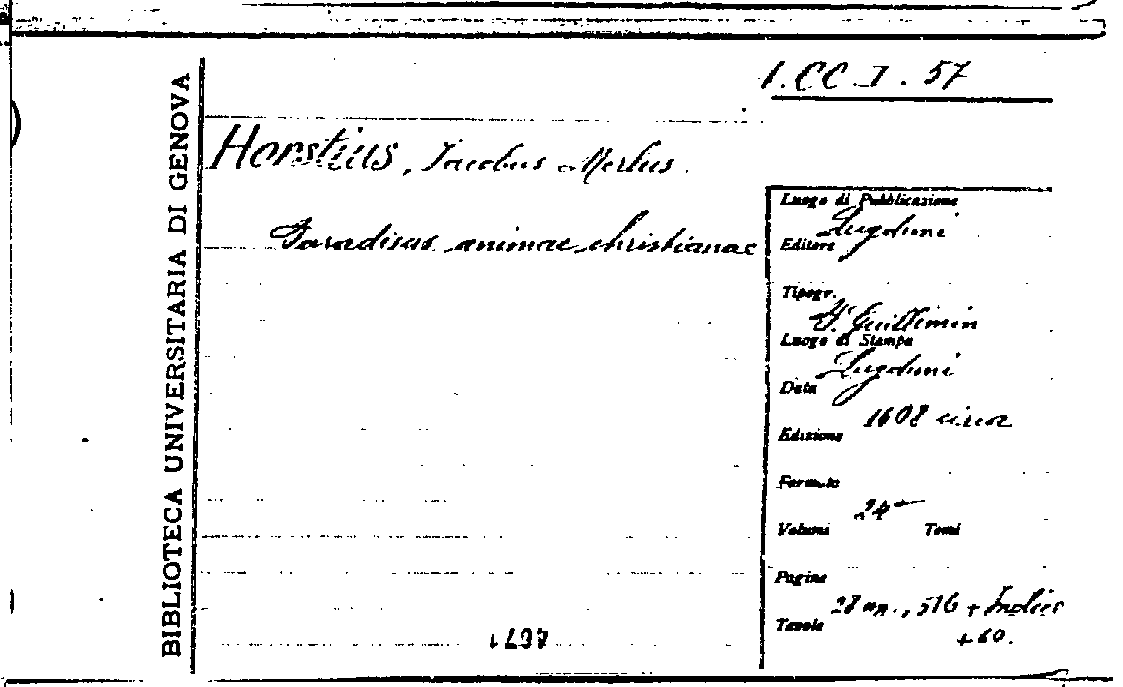 1.CC.I.57
BIBLIOTECA UNIVERSITARIA DI GENOVA
Horstius, Jacobus Merlus.
Paradisus animae christianae
Luogo di Pubblicazione
Lugduni
Editore
Tipogr.
F. Guillimin
Luogo di Stampa
Lugduni
Data
1608 circa
Edizione
Formato
24°
Volumi Tomi
Pagine
28 nn., 516 + Indice
Tavole
+ 60.